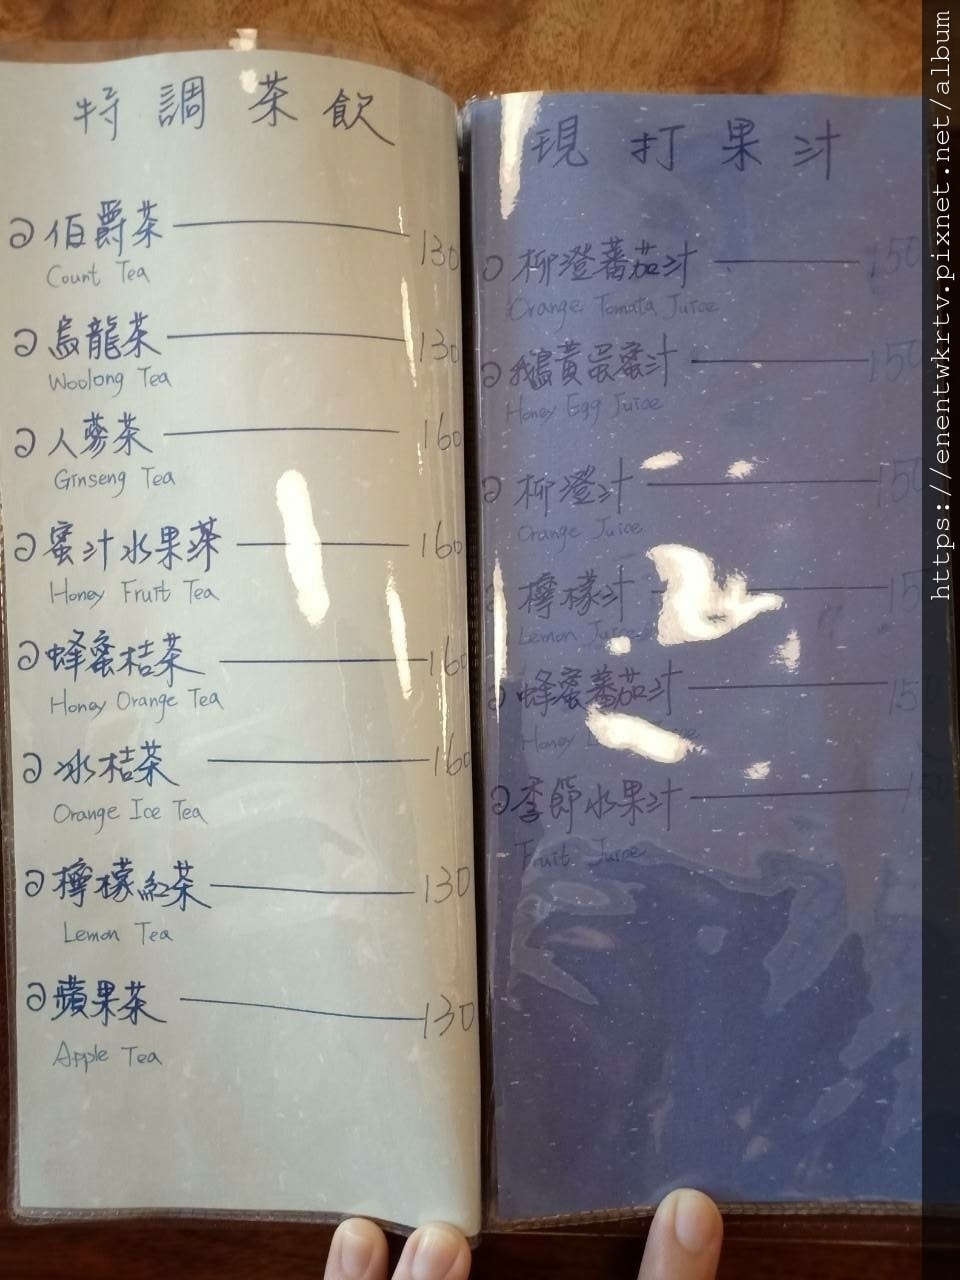 特調茶飲
伯爵茶 130
Count Tea
烏龍茶 130
Woolong Tea
人蔘茶 160
Ginseng Tea
蜜汁水果茶 160
Honey Fruit Tea
蜂蜜桔茶 160
Honey Orange Tea
冰桔茶 160
Orange Ice Tea
檸檬紅茶 130
Lemon Tea
蘋果茶 130
Apple Tea
現打果汁
柳澄蕃茄汁 150
Orange Tomata Juice
鵝黃蛋蜜汁 150
Honey Egg Juice
柳澄汁 150
Orange Juice
檸檬汁
Lemon Juice
蜂蜜蕃茄汁 150
Honey
季節水果汁 150
Fruit Juice
https://enentwkrtv.pixnet.net/album